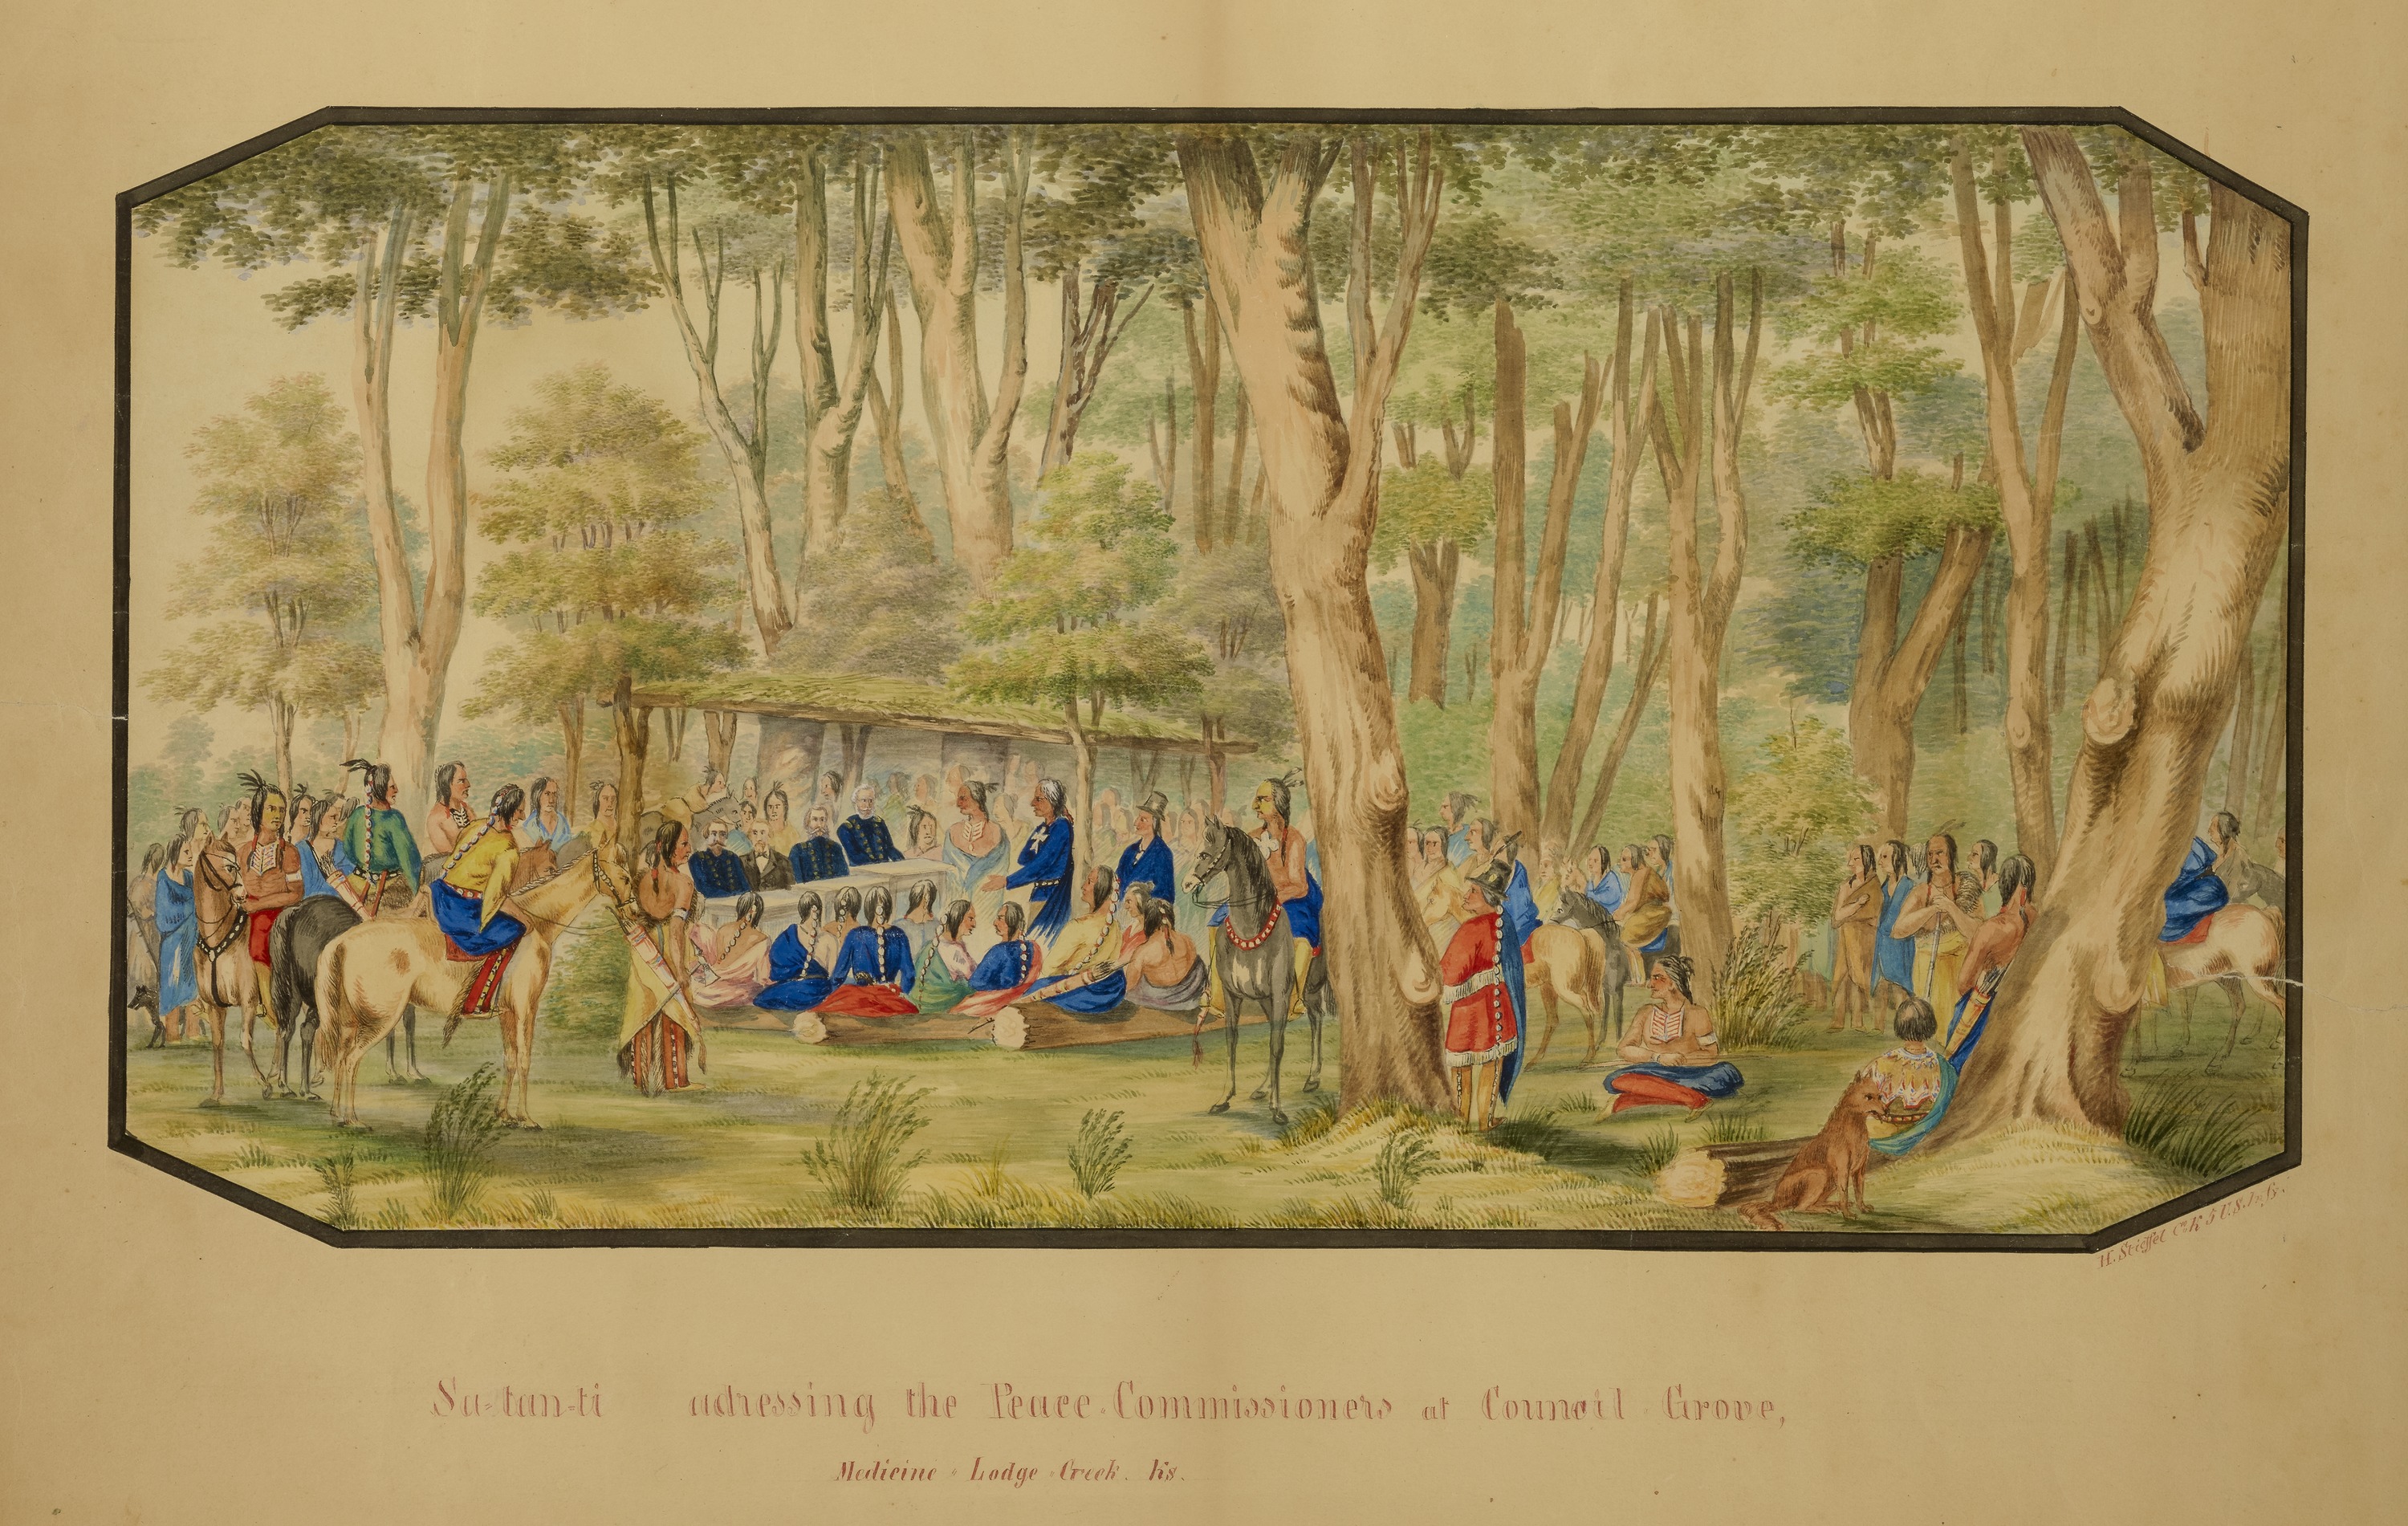 H. Stieffel Co. K 5 U.S. Infy.
Sa-tan-ti adressing the Peace Commissioners at Council Grove,
Medicine Lodge Creek. Ks.